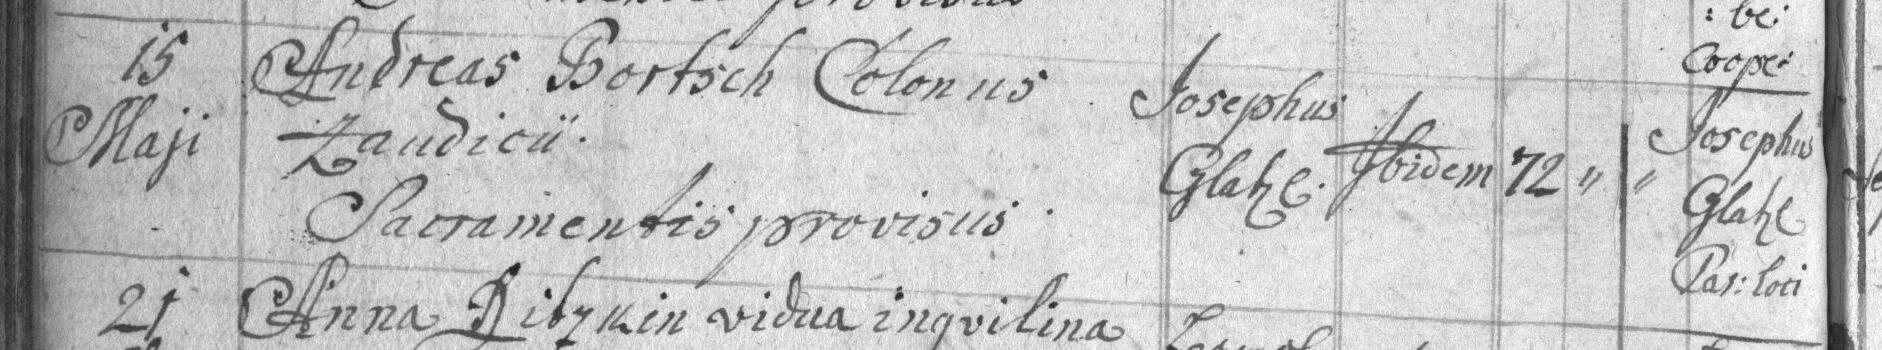 : be:
Coope:
15 Andreas Bortsch Colonus
Maji Zaudicii.
Sacramentis provisus.
Josephus
Glatze.
Ibidem 72 " "
Josephus
Glatze
Par: loci
21 Anna Ritzkin vidua inqvilina